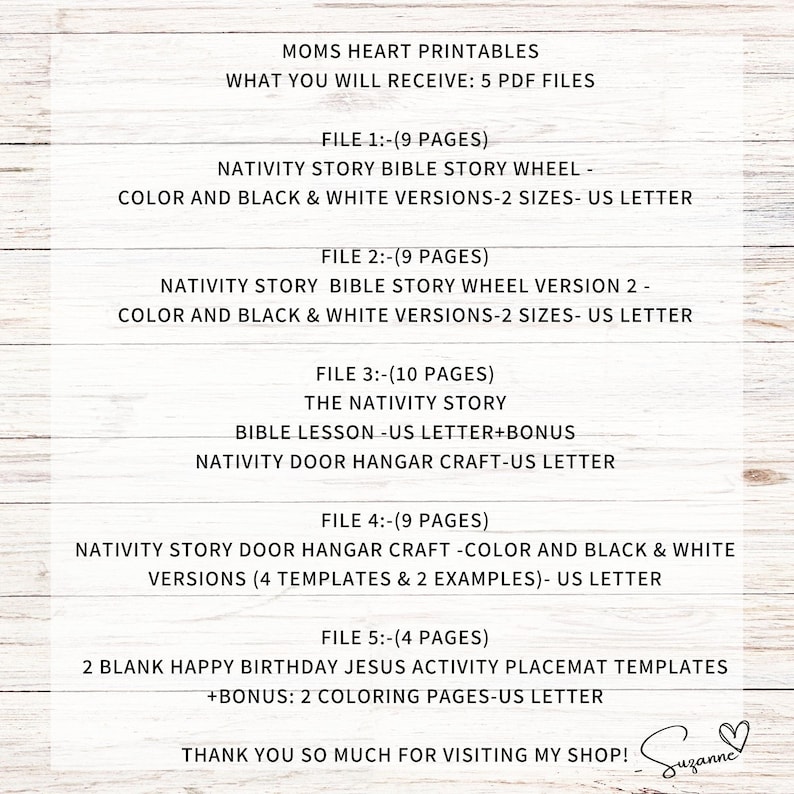 MOMS HEART PRINTABLES
WHAT YOU WILL RECEIVE: 5 PDF FILES
FILE 1:-(9 PAGES)
NATIVITY STORY BIBLE STORY WHEEL -
COLOR AND BLACK & WHITE VERSIONS-2 SIZES- US LETTER
FILE 2:-(9 PAGES)
NATIVITY STORY BIBLE STORY WHEEL VERSION 2 -
COLOR AND BLACK & WHITE VERSIONS-2 SIZES- US LETTER
FILE 3:-(10 PAGES)
THE NATIVITY STORY
BIBLE LESSON -US LETTER+BONUS
NATIVITY DOOR HANGAR CRAFT-US LETTER
FILE 4:-(9 PAGES)
NATIVITY STORY DOOR HANGAR CRAFT -COLOR AND BLACK & WHITE
VERSIONS (4 TEMPLATES & 2 EXAMPLES)- US LETTER
FILE 5:-(4 PAGES)
2 BLANK HAPPY BIRTHDAY JESUS ACTIVITY PLACEMAT TEMPLATES
+BONUS: 2 COLORING PAGES-US LETTER
THANK YOU SO MUCH FOR VISITING MY SHOP! Suzanne